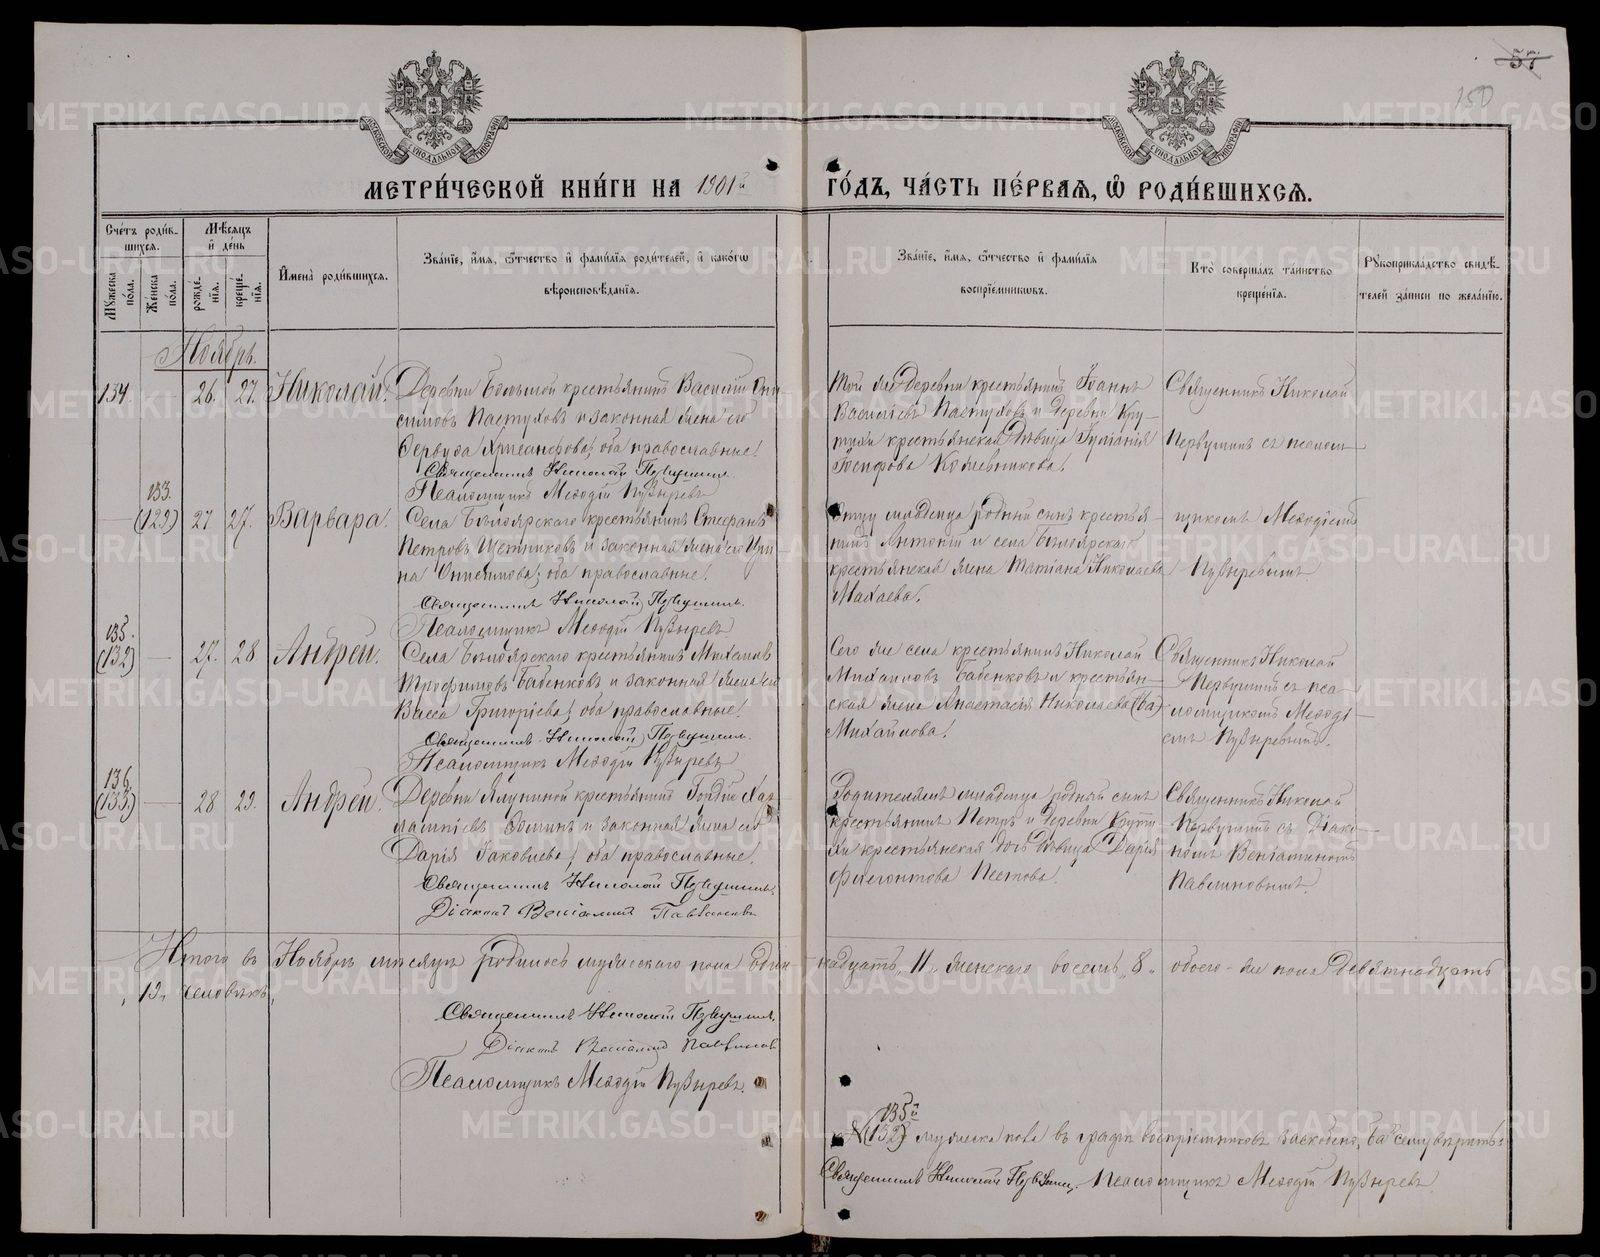 57
150
МЕТРИ́ЧЕСКОЙ КНИ́ГИ НА 1901й ГО́ДЪ, ЧА́СТЬ ПЕ́РВАЯ, Ѡ РОДИ́ВШИХСЯ.
Сче́тъ роди́в-
шихся.
Мѣсяцъ
и де́нь
Мꙋжеска по́ла.
Же́нска по́ла.
рожде́нїя.
креще́нїя.
И҆мена̀ роди́вшихся.
Зва́нїе, и҆́мя, ѻ҆́тчество и҆ фами́лїя роди́телей, и҆ како́гѡ
вѣроисповѣ́данїя.
Зва́нїе, и҆́мя, ѻ҆́тчество и҆ фами́лїя
воспрїе́мникѡвъ.
Кто̀ соверша́лъ та́инство
креще́нїя.
Рꙋкоприкла́дство свидѣ́-
телей за́писи по жела́нїю.
Ноябрь.
134. 26. 27. Николай.
Деревни Большой крестьянинъ Василій Они-
симовъ Пастуховъ и законная жена его
оба православные.
Священникъ Николай Первушинъ.
Псаломщикъ Меѳодій Пузыревъ
Той же деревни крестьянинъ Іоаннъ
Васильевъ Пастуховъ и деревни Кру-
тихи крестьянская дѣвица
Іосифова Кожевникова.
Священникъ Николай
Первушинъ съ псалом-
133.
(129) 27 27. Варвара.
Села Бѣлоярскаго крестьянинъ Стефанъ
Петровъ Щетниковъ и законная жена его Ири-
на Онисимова; оба православные.
Священникъ Николай Первушинъ.
Псаломщикъ Меѳодій Пузыревъ
Отцу младенца родный сынъ крестья-
нинъ Антоній и села Бѣлоярскаго
крестьянская жена Татіана Николаева
Махаева.
щикомъ Меѳодіемъ
Пузыревымъ
135.
(132) 27. 28 Андрей.
Села Бѣлоярскаго крестьянинъ Михаилъ
Трофимовъ Бабенковъ и законная жена его
Васса Григоріева; оба православные.
Священникъ Николай Первушинъ.
Псаломщикъ Меѳодій Пузыревъ
Сего же села крестьянинъ Николай
Михаиловъ Бабенковъ и крестьян-
ская жена Анастасія Николаева (ва)
Михайлова.
Священникъ Николай
Первушинъ съ пса-
ломщикомъ Меѳоді-
емъ Пузыревымъ.
136.
(133) 28 29. Андрей.
Деревни Ялуниной крестьянинъ Гордій Хар-
лампіевъ Ѳоминъ и законная жена его
Дарія Іаковлева; оба православные.
Священникъ Николай Первушинъ.
Діаконъ Веніаминъ Павлиновъ
Родителямъ младенца родный сынъ
крестьянинъ Петръ и деревни Крути-
хи крестьянская дочь дѣвица Дарія
Флегонтова Пестова.
Священникъ Николай
Первушинъ съ Діако-
номъ Веніаминомъ
Павлиновымъ.
Итого въ Ноябрѣ мѣсяцѣ родилось мужескаго пола один-надцать „11„ женскаго восемь „8„ обоего же пола девятнадцать
„19„ человѣкъ.
Священникъ Николай Первушинъ.
Діаконъ Веніаминъ Павлиновъ
Псаломщикъ Меѳодій Пузыревъ.
135й
№ (132) мужеска пола въ графѣ воспріемниковъ заскоблено „ва“ сему вѣрить:
Священникъ Николай Первушинъ. Псаломщикъ Меѳодій Пузыревъ
METRIKI.GASO-URAL.RU